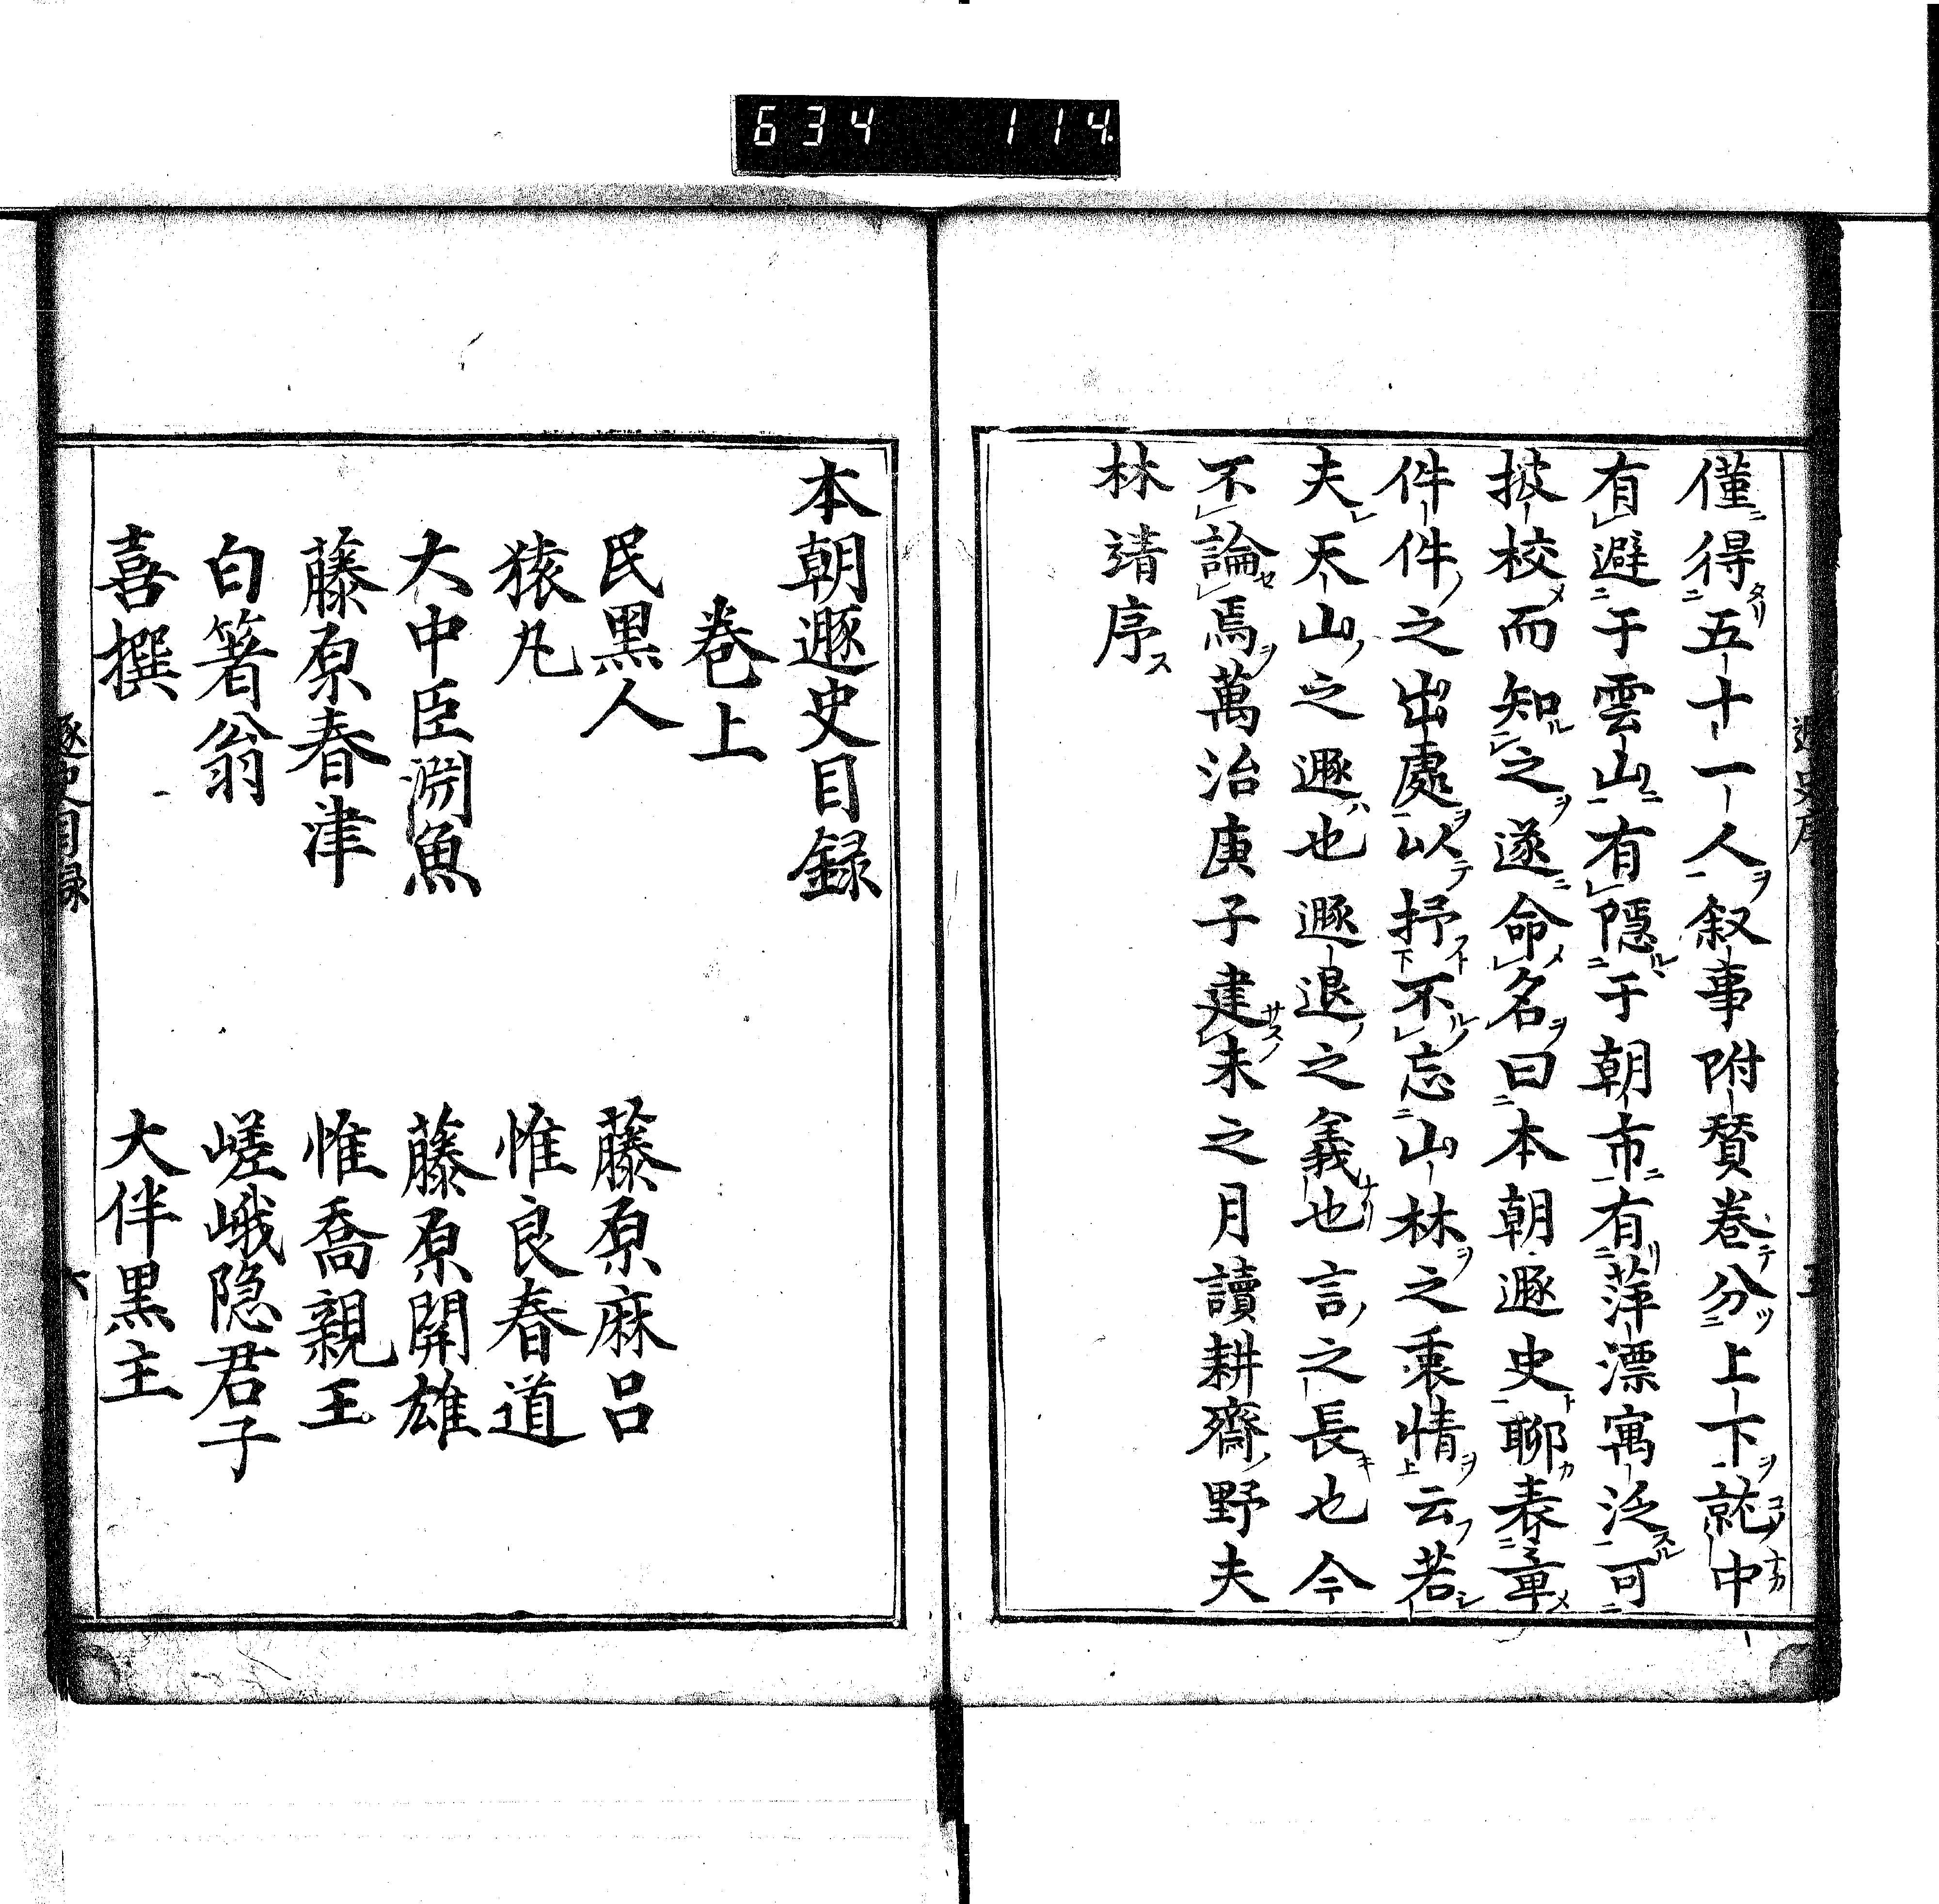 634 114
僅得五十一人叙事附賛卷分上下就中
有避于雲山有隱于朝市有萍漂寓泛可
披校而知之遂命名曰本朝遯史聊表章
件件之出處以抒不忘山林之素情云若
夫天山之遯也遯退之義也言之長也今
不論焉萬治庚子建未之月讀耕齋野夫
林靖序
本朝遯史目録
卷上
民黒人 藤原麻呂
猿丸 惟良春道
大中臣淵魚 藤原関雄
藤原春津 惟喬親王
白箸翁 嵯峨隐君子
喜撰 大伴黒主